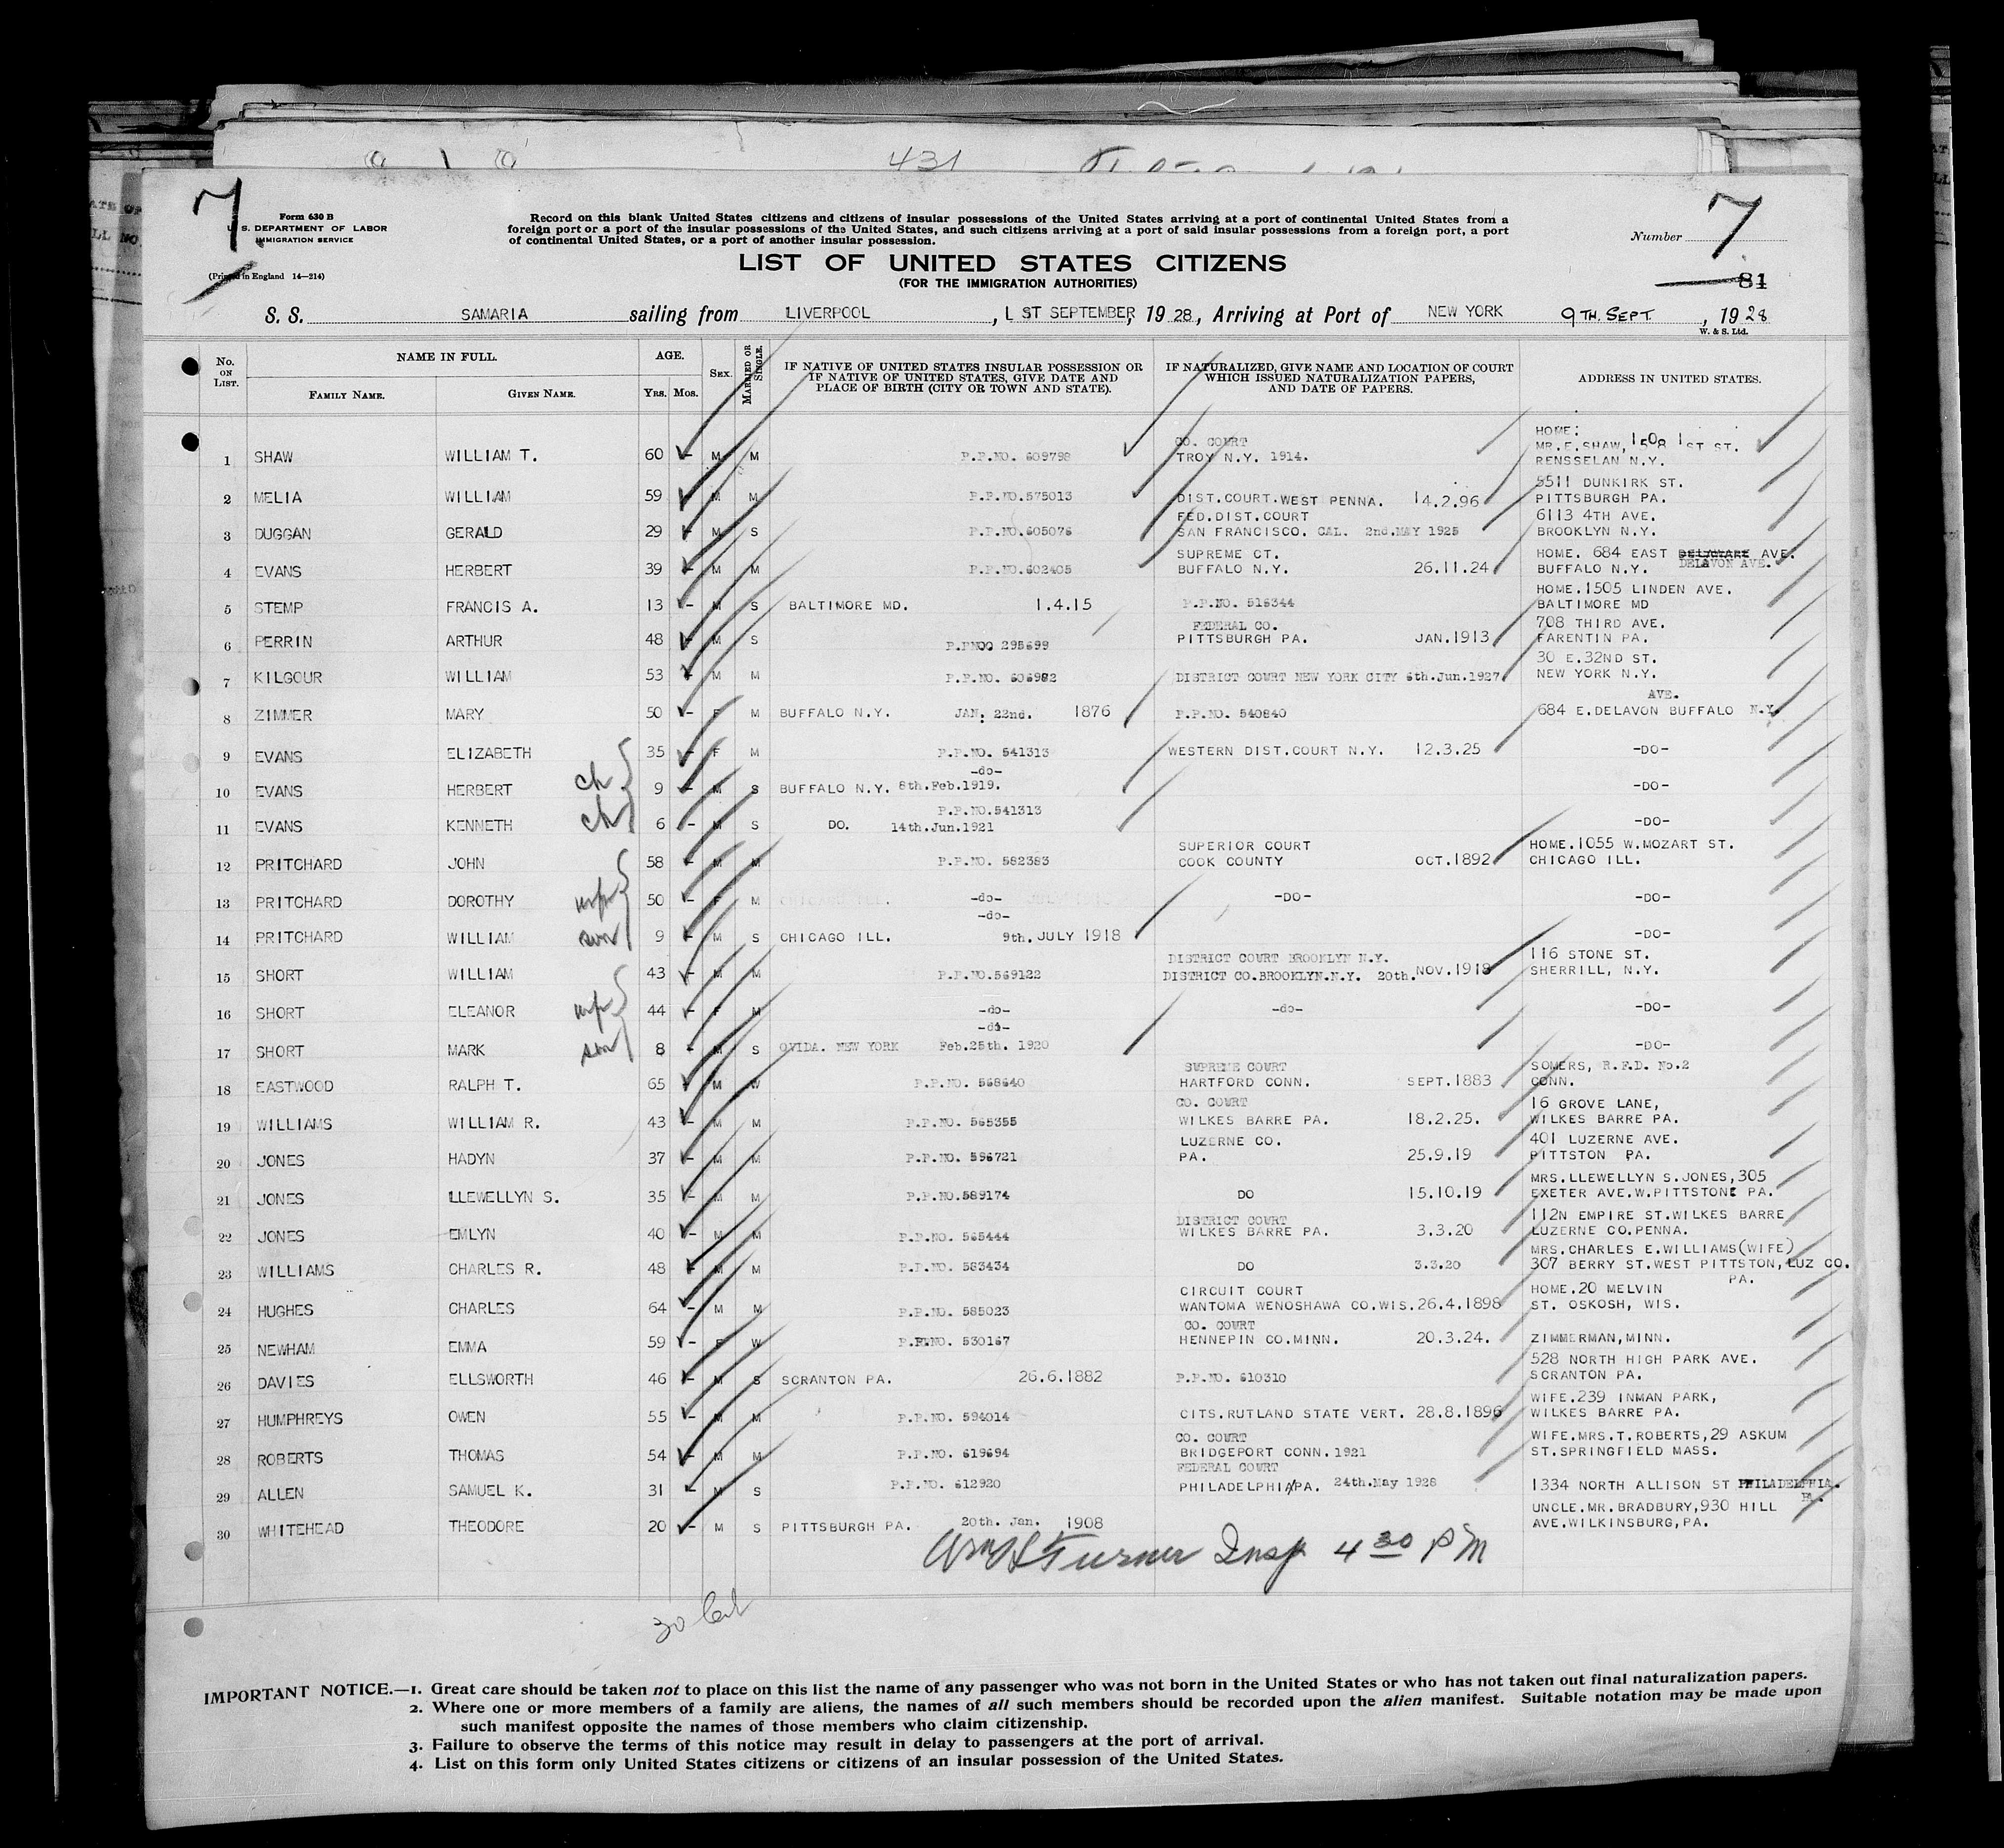 431
7
7
Form 630 B
U. S. DEPARTMENT OF LABOR
IMMIGRATION SERVICE
(Printed in England 14—214)
Record on this blank United States citizens and citizens of insular possessions of the United States arriving at a port of continental United States from a
foreign port or a port of the insular possessions of the United States, and such citizens arriving at a port of said insular possessions from a foreign port, a port
of continental United States, or a port of another insular possession.
Number
LIST OF UNITED STATES CITIZENS
(FOR THE IMMIGRATION AUTHORITIES)
81
S. S. SAMARIA sailing from LIVERPOOL , 1 ST SEPTEMBER, 19 28, Arriving at Port of NEW YORK 9TH. SEPT. , 19 28
W. & S. Ltd.
No. ON LIST. NAME IN FULL. AGE. SEX. MARRIED OR SINGLE. IF NATIVE OF UNITED STATES INSULAR POSSESSION OR IF NATIVE OF UNITED STATES, GIVE DATE AND PLACE OF BIRTH (CITY OR TOWN AND STATE). IF NATURALIZED, GIVE NAME AND LOCATION OF COURT WHICH ISSUED NATURALIZATION PAPERS, AND DATE OF PAPERS. ADDRESS IN UNITED STATES.
FAMILY NAME. GIVEN NAME. YRS. MOS.
1 SHAW WILLIAM T. 60 - M M P.P.NO. 609798 CO. COURT TROY N.Y. 1914. HOME: MR.E.SHAW, 1508 1 ST ST. RENSSELAN N.Y.
2 MELIA WILLIAM 59 - M M P.P.NO.575013 DIST.COURT.WEST PENNA. 14.2.96 5511 DUNKIRK ST. PITTSBURGH PA.
3 DUGGAN GERALD 29 - M S P.P.NO.605076 FED.DIST.COURT SAN FRANCISCO. CAL. 2nd.MAY 1925 6113 4TH AVE. BROOKLYN N.Y.
4 EVANS HERBERT 39 - M M P.P.NO.602405 SUPREME CT. BUFFALO N.Y. 26.11.24 HOME. 684 EAST DELAWARE AVE. DELAVON AVE. BUFFALO N.Y.
5 STEMP FRANCIS A. 13 - M S BALTIMORE MD. 1.4.15 P.P.NO. 516344 HOME.1505 LINDEN AVE. BALTIMORE MD
6 PERRIN ARTHUR 48 - M S P.PNOO 295699 FEDERAL CO. PITTSBURGH PA. JAN.1913 708 THIRD AVE. FARENTIN PA.
7 KILGOUR WILLIAM 53 - M M P.P.NO. 606982 DISTRICT COURT NEW YORK CITY 6th.Jun.1927 30 E.32ND ST. NEW YORK N.Y.
8 ZIMMER MARY 50 - F M BUFFALO N.Y. JAN, 22nd. 1876 P.P.NO. 540840 684 E.DELAVON AVE. BUFFALO N.Y.
9 EVANS ELIZABETH 35 - F M P.P.NO. 541313 WESTERN DIST.COURT N.Y. 12.3.25 -DO-
10 EVANS HERBERT ch 9 - M S -do- BUFFALO N.Y. 8th.Feb.1919. -DO-
11 EVANS KENNETH ch 6 - M S P.P.NO.541313 DO. 14th.Jun.1921 -DO-
12 PRITCHARD JOHN 58 - M M P.P.NO. 582383 SUPERIOR COURT COOK COUNTY OCT.1892 HOME.1055 W.MOZART ST. CHICAGO ILL.
13 PRITCHARD DOROTHY 50 - F M -do- -DO- -DO-
14 PRITCHARD WILLIAM son 9 - M S -do- CHICAGO ILL. 9th. JULY 1918 -DO-
15 SHORT WILLIAM 43 - M M P.P.NO.569122 DISTRICT COURT BROOKLYN N.Y. DISTRICT CO.BROOKLYN.N.Y. 20th.NOV.1918 116 STONE ST. SHERRILL, N.Y.
16 SHORT ELEANOR 44 - F M -do- -do- -DO-
17 SHORT MARK son 8 - M S -do- OVIDA. NEW YORK Feb.25th. 1920 -DO-
18 EASTWOOD RALPH T. 65 - M W P.P.NO. 568640 SUPREME COURT HARTFORD CONN. SEPT.1883 SOMERS, R.F.D. No.2 CONN.
19 WILLIAMS WILLIAM R. 43 - M M P.P.NO. 565355 CO. COURT WILKES BARRE PA. 18.2.25. 16 GROVE LANE, WILKES BARRE PA.
20 JONES HADYN 37 - M M P.P.NO. 596721 LUZERNE CO. PA. 25.9.19 401 LUZERNE AVE. PITTSTON PA.
21 JONES LLEWELLYN S. 35 - M M P.P.NO.589174 DO 15.10.19 MRS.LLEWELLYN S.JONES,305 EXETER AVE.W.PITTSTON PA.
22 JONES EMLYN 40 - M M P.P.NO. 565444 DISTRICT COURT WILKES BARRE PA. 3.3.20 112N EMPIRE ST.WILKES BARRE LUZERNE CO.PENNA.
23 WILLIAMS CHARLES R. 48 - M M P.P.NO. 583434 DO 3.3.20 MRS.CHARLES E.WILLIAMS(WIFE) 307 BERRY ST.WEST PITTSTON,LUZ CO. PA.
24 HUGHES CHARLES 64 - M M P.P.NO. 585023 CIRCUIT COURT WANTOMA WENOSHAWA CO.WIS.26.4.1898 HOME.20 MELVIN ST. OSKOSH, WIS.
25 NEWHAM EMMA 59 - F W P.P.NO. 530167 CO. COURT HENNEPIN CO.MINN. 20.3.24. ZIMMERMAN,MINN.
26 DAVIES ELLSWORTH 46 - M S SCRANTON PA. 26.6.1882 P.P.NO. 610310 528 NORTH HIGH PARK AVE. SCRANTON PA.
27 HUMPHREYS OWEN 55 - M M P.P.NO. 594014 CITS.RUTLAND STATE VERT. 28.8.1896 WIFE.239 INMAN PARK, WILKES BARRE PA.
28 ROBERTS THOMAS 54 - M M P.P.NO. 619694 CO. COURT BRIDGEPORT CONN.1921 WIFE.MRS.T.ROBERTS,29 ASKUM ST.SPRINGFIELD MASS.
29 ALLEN SAMUEL K. 31 - M S P.P.NO. 612920 FEDERAL COURT PHILADELPHIA/PA. 24th.May 1928 1334 NORTH ALLISON ST PHILADELPHIA.
30 WHITEHEAD THEODORE 20 - M S PITTSBURGH PA. 20th. Jan. 1908 UNCLE.MR.BRADBURY,930 HILL AVE.WILKINSBURG,PA.
Turner Insp 4 30 PM
IMPORTANT NOTICE.—1. Great care should be taken not to place on this list the name of any passenger who was not born in the United States or who has not taken out final naturalization papers.
2. Where one or more members of a family are aliens, the names of all such members should be recorded upon the alien manifest. Suitable notation may be made upon
such manifest opposite the names of those members who claim citizenship.
3. Failure to observe the terms of this notice may result in delay to passengers at the port of arrival.
4. List on this form only United States citizens or citizens of an insular possession of the United States.